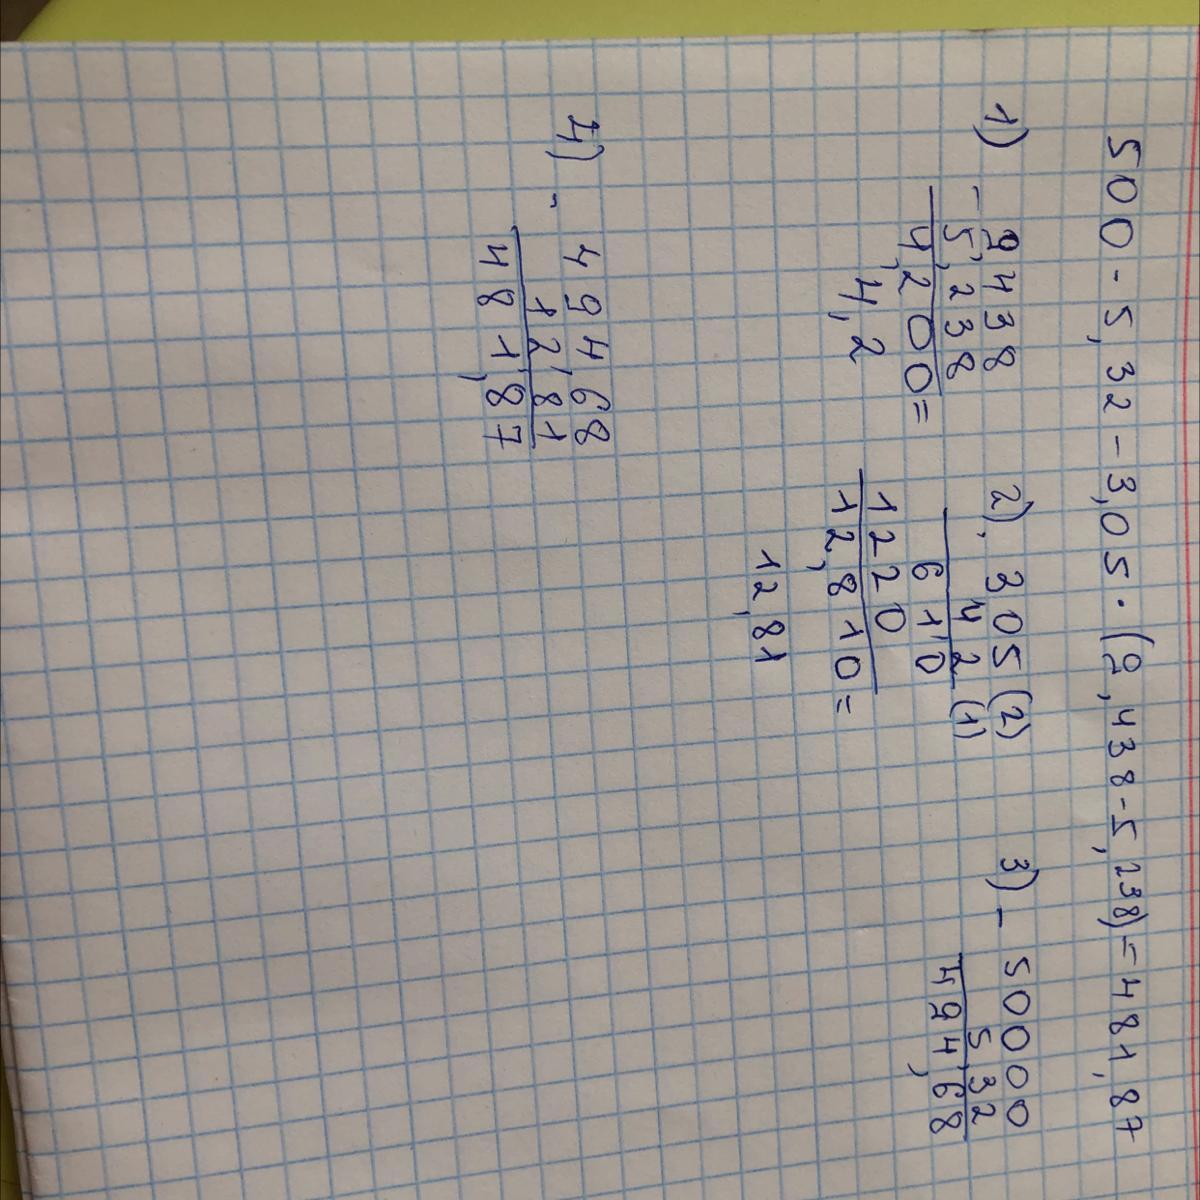 500 - 5,32 - 3,05 · (9,438 - 5,238) = 481,87
1) - 9438
5,238
4,200 =
4,2
2) · 305 (2)
42 (1)
610
1220
12,810 =
12,81
3) - 50000
5,32
494,68
4) - 49468
12,81
481,87